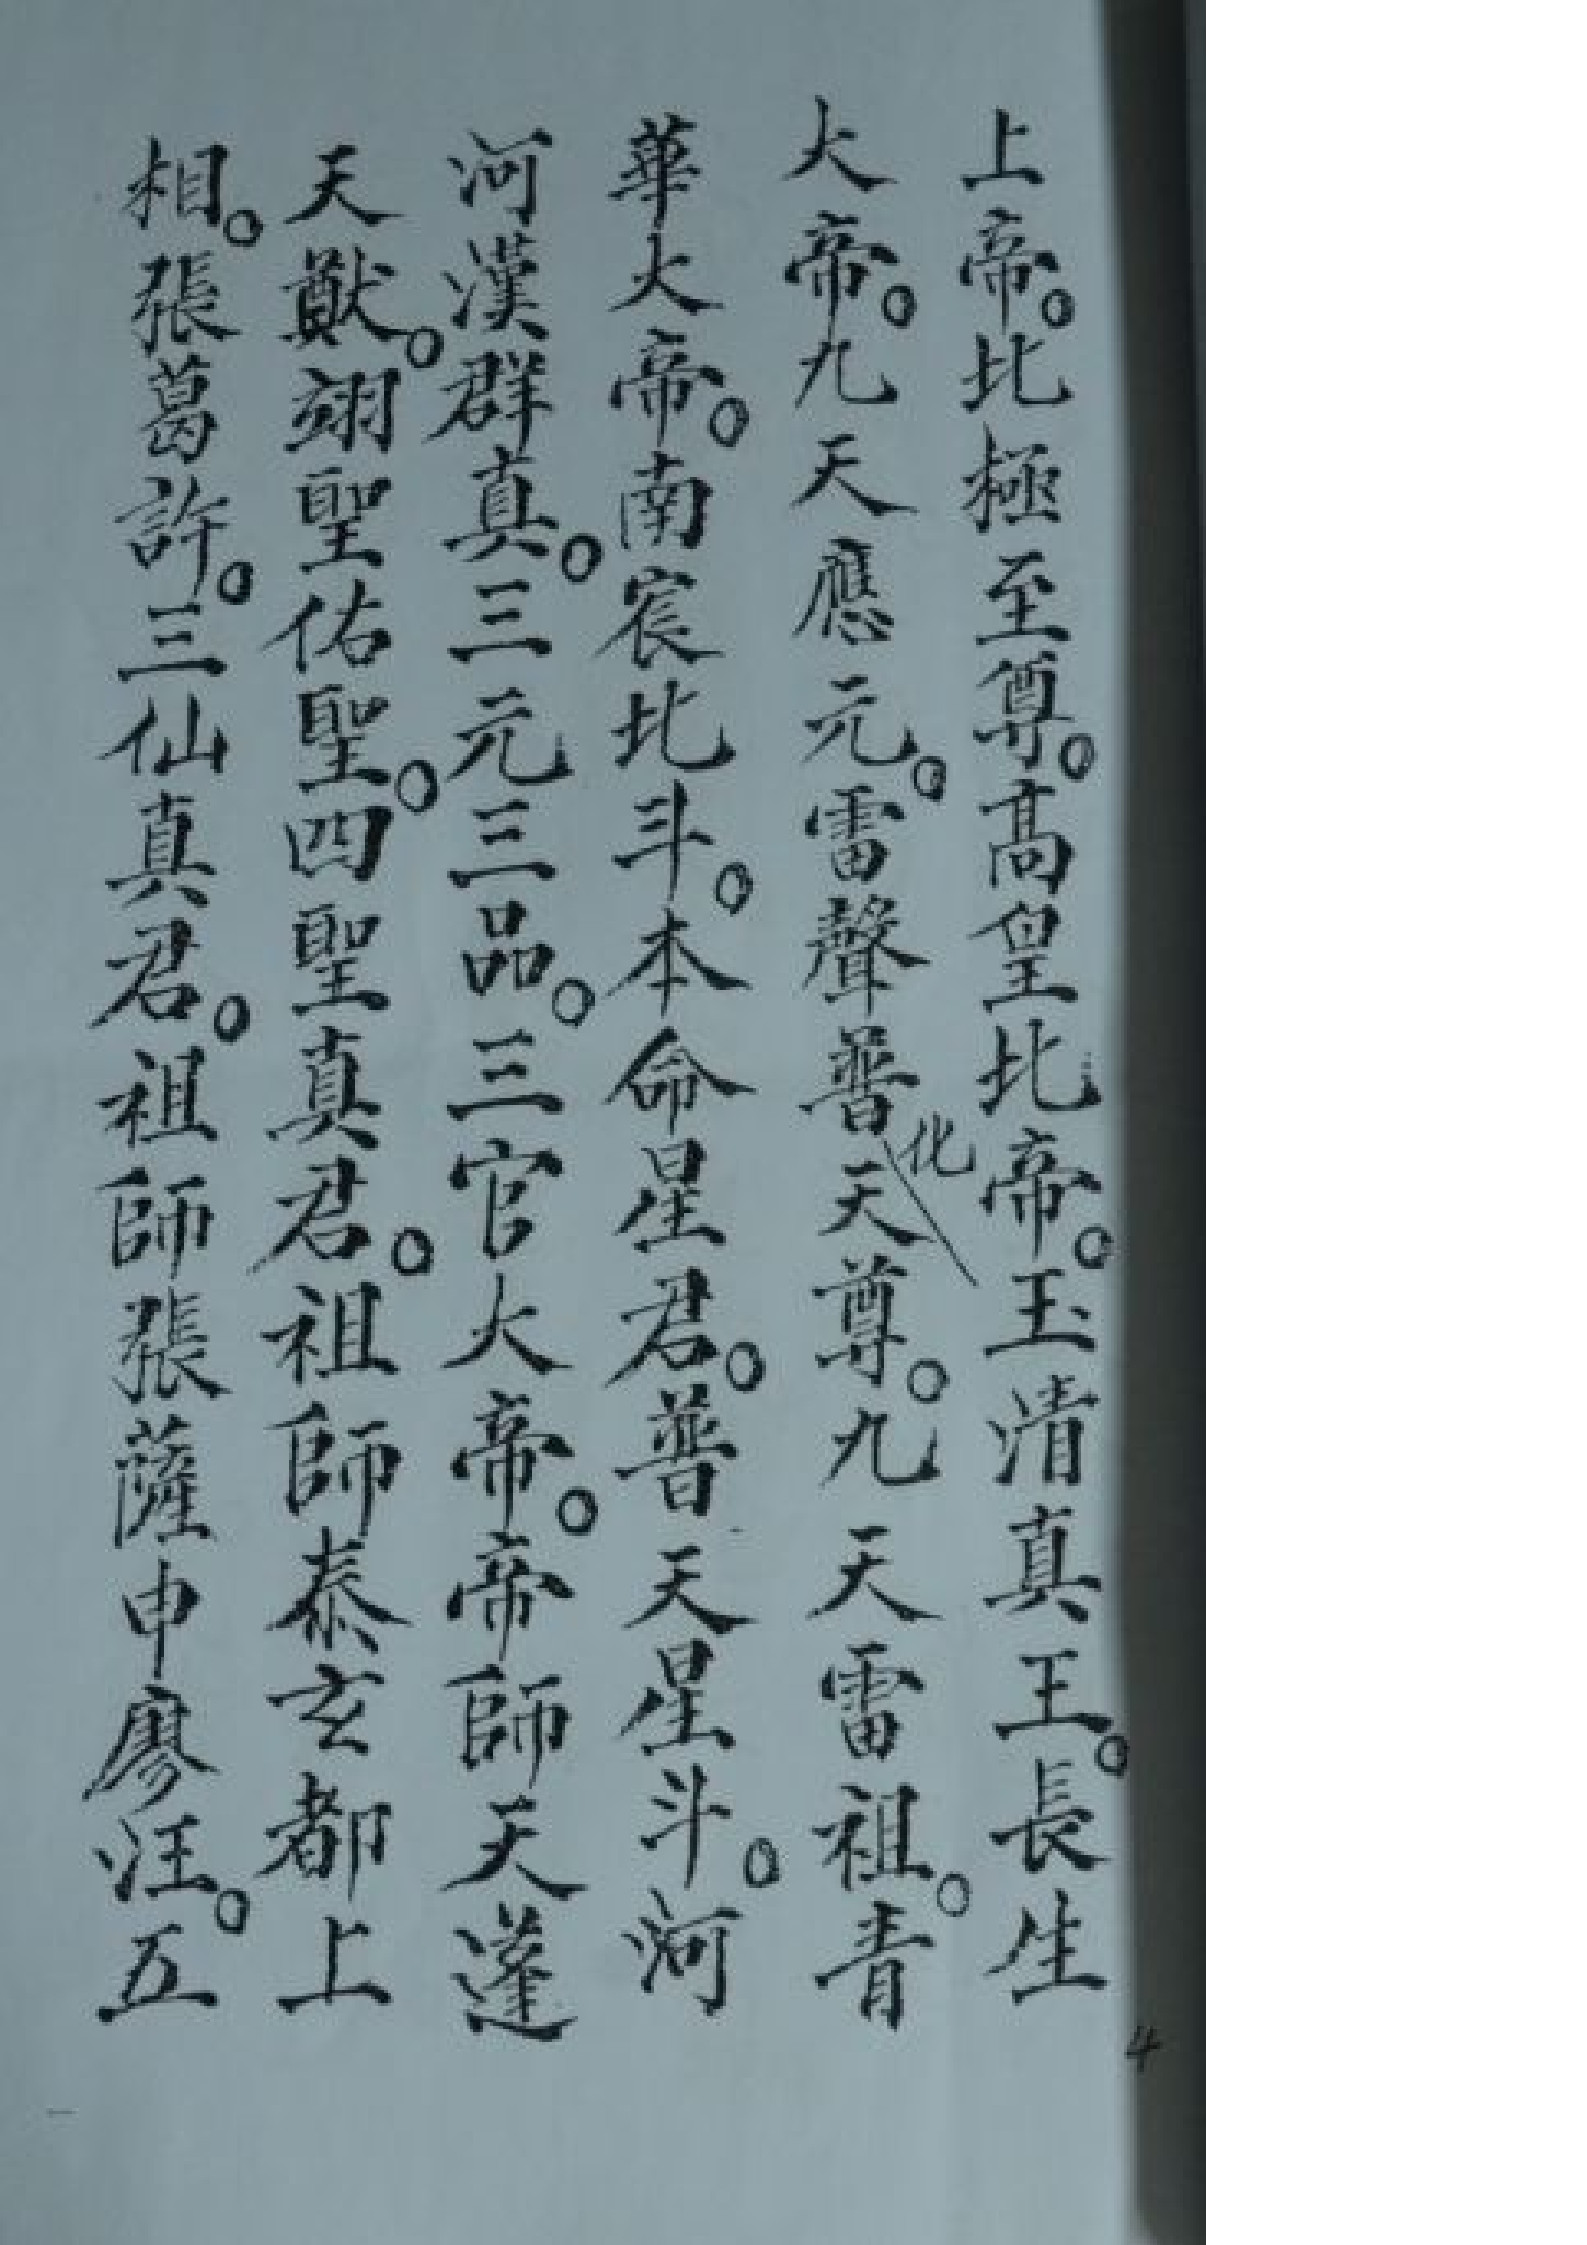 上帝。北極至尊。高皇北帝。玉清真王。長生
大帝。九天應元。雷聲普化天尊。九天雷祖。青
華大帝。南宸北斗。本命星君。普天星斗。河
河漢群真。三元三品。三官大帝。帝師天蓬
天猷。翊聖佑聖。四聖真君。祖師泰玄都上
相。張葛許。三仙真君。祖師張薩申廖汪。五
4